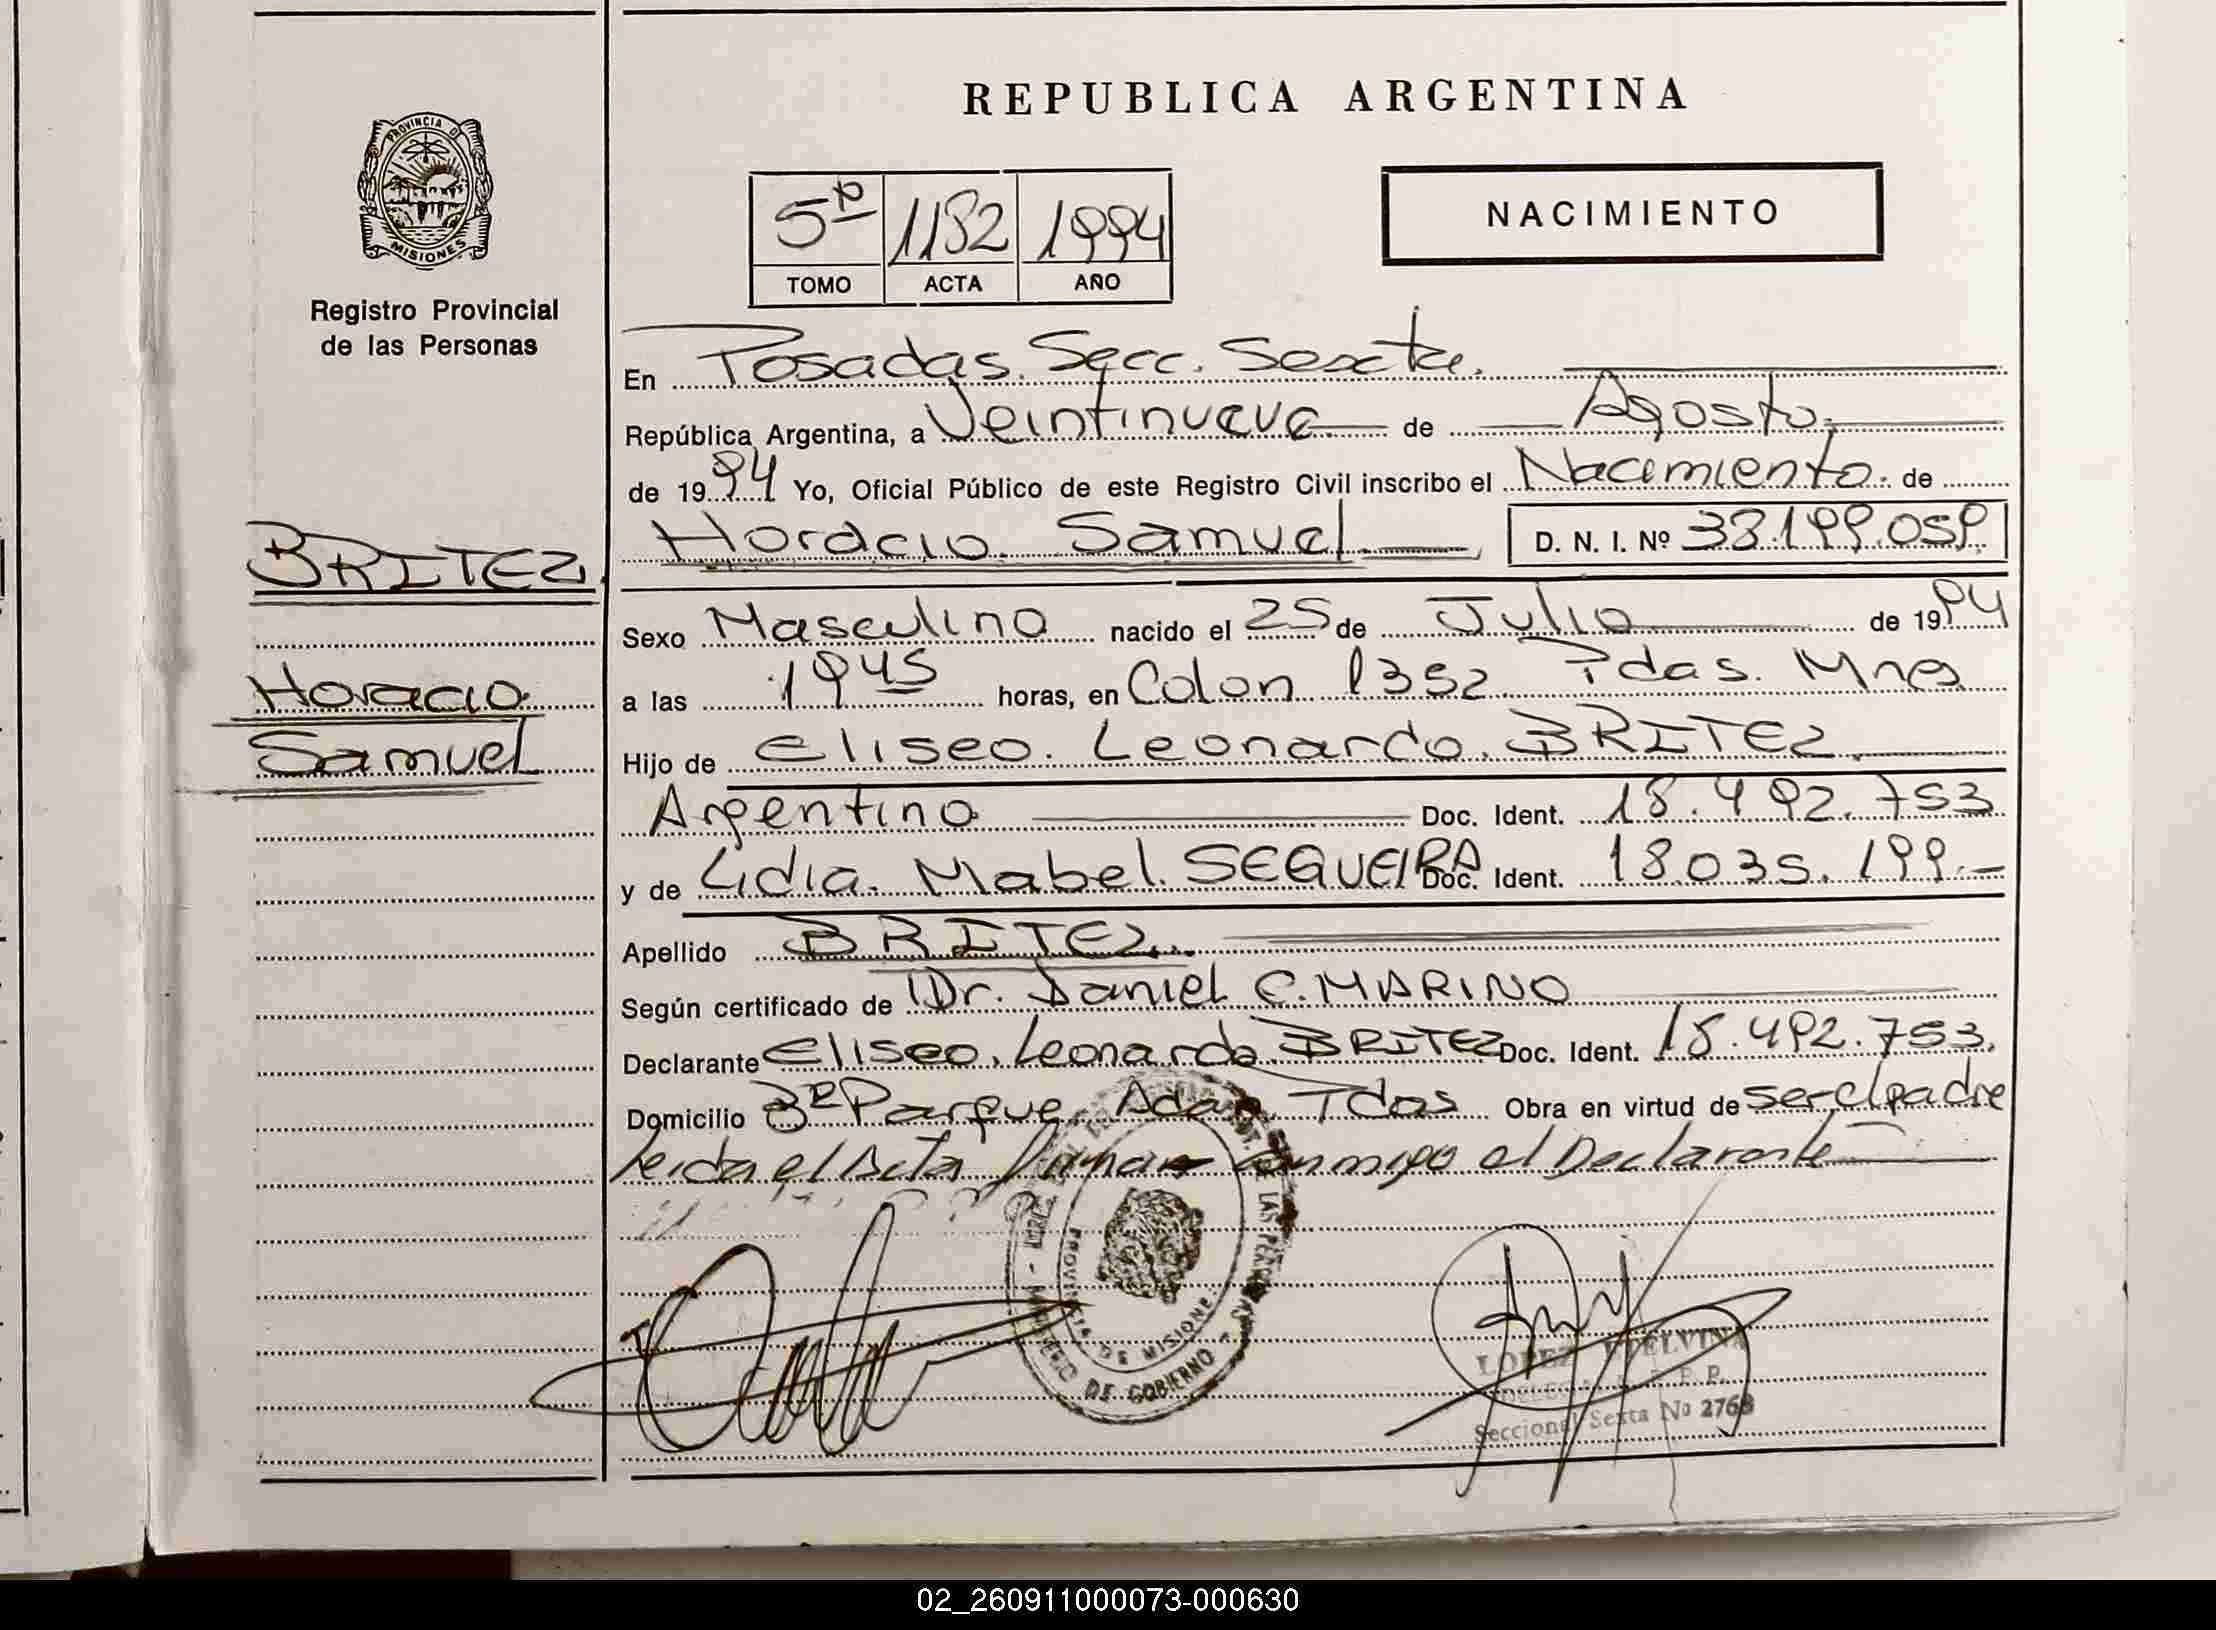 REPUBLICA ARGENTINA
PROVINCIA D
MISIONES
Registro Provincial
de las Personas
5º 1182 1994
TOMO ACTA AÑO
NACIMIENTO
En Posadas. Secc. Sexta.
República Argentina, a Veintinueve de Agosto,
de 1994 Yo, Oficial Público de este Registro Civil inscribo el Nacimiento. de
Horacio Samuel D. N. I. Nº 38.199.059
BRITEZ
Horacio
Samuel
Sexo Masculino nacido el 25 de Julio de 1994
a las 1945 horas, en Colon 1352 Pdas. Mnes
Hijo de Eliseo. Leonardo. BRITEZ.
Argentino Doc. Ident. 18.492.753
y de Lidia. Mabel. SEQUEIRA Doc. Ident. 18.035.199.-
Apellido BRITEZ.
Según certificado de Dr. Daniel C. MARINO
Declarante Eliseo. Leonardo. BRITEZ Doc. Ident. 18.492.753.
Domicilio Parque Adam. Pdas Obra en virtud de ser el padre
Leida el Acta Firman conmigo el Declarante
LAS PERSONAS
PROVINCIA DE MISIONES
MINISTERIO DE GOBIERNO
LOPEZ ETELVINA
R. P. P.
Seccional Sexta Nº 2768
02_260911000073-000630